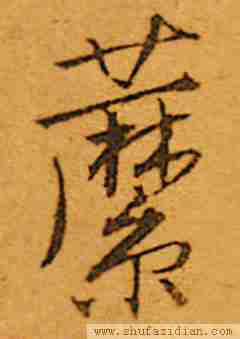 䕷
www.shufazidian.com